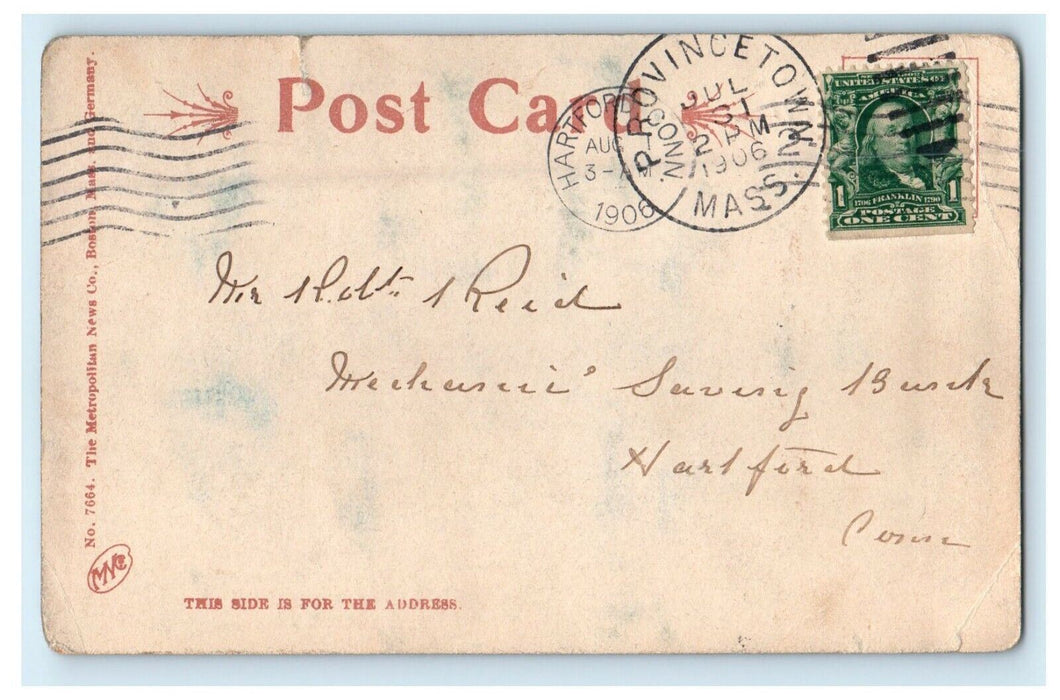 Post Card
HARTFORD CONN.
AUG 1
3-AM
1906
PROVINCETOWN
JUL
31
2 PM
1906
MASS.
UNITED STATES OF
AMERICA
1 1706 FRANKLIN 1790 1
POSTAGE
ONE CENT
Mr Robt. Reid
Mechanic' Saving Bank
Hartford
Conn
No. 7664. The Metropolitan News Co., Boston, Mass. and Germany.
MNCo
THIS SIDE IS FOR THE ADDRESS.